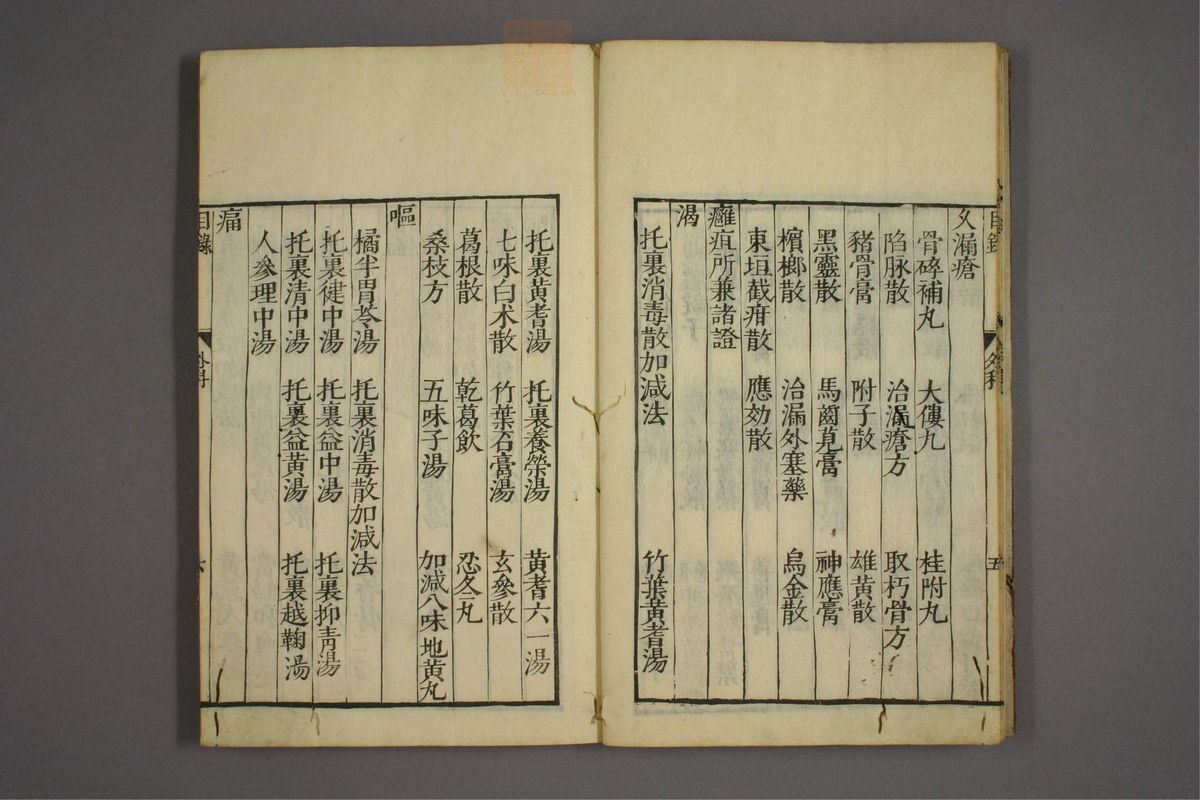 目錄
外科
五
久漏瘡
骨碎補丸 大僂丸 桂附丸
陷脉散 治漏瘡方 取朽骨方
豬骨膏 附子散 雄黃散
黑靈散 馬齒莧膏 神應膏
檳榔散 治漏外塞藥 烏金散
東垣截疳散 應効散
癰疽所兼諸證
渴
托裏消毒散加減法 竹葉黃耆湯
托裏黃耆湯 托裏養榮湯 黃耆六一湯
七味白朮散 竹葉石膏湯 玄參散
葛根散 乾葛飲 忍冬丸
桑枝方 五味子湯 加減八味地黃丸
嘔
橘半胃苓湯 托裏消毒散加減法
托裏健中湯 托裏益中湯 托裏抑青湯
托裏清中湯 托裏益黃湯 托裏越鞠湯
人參理中湯
痛
目錄
外科
六